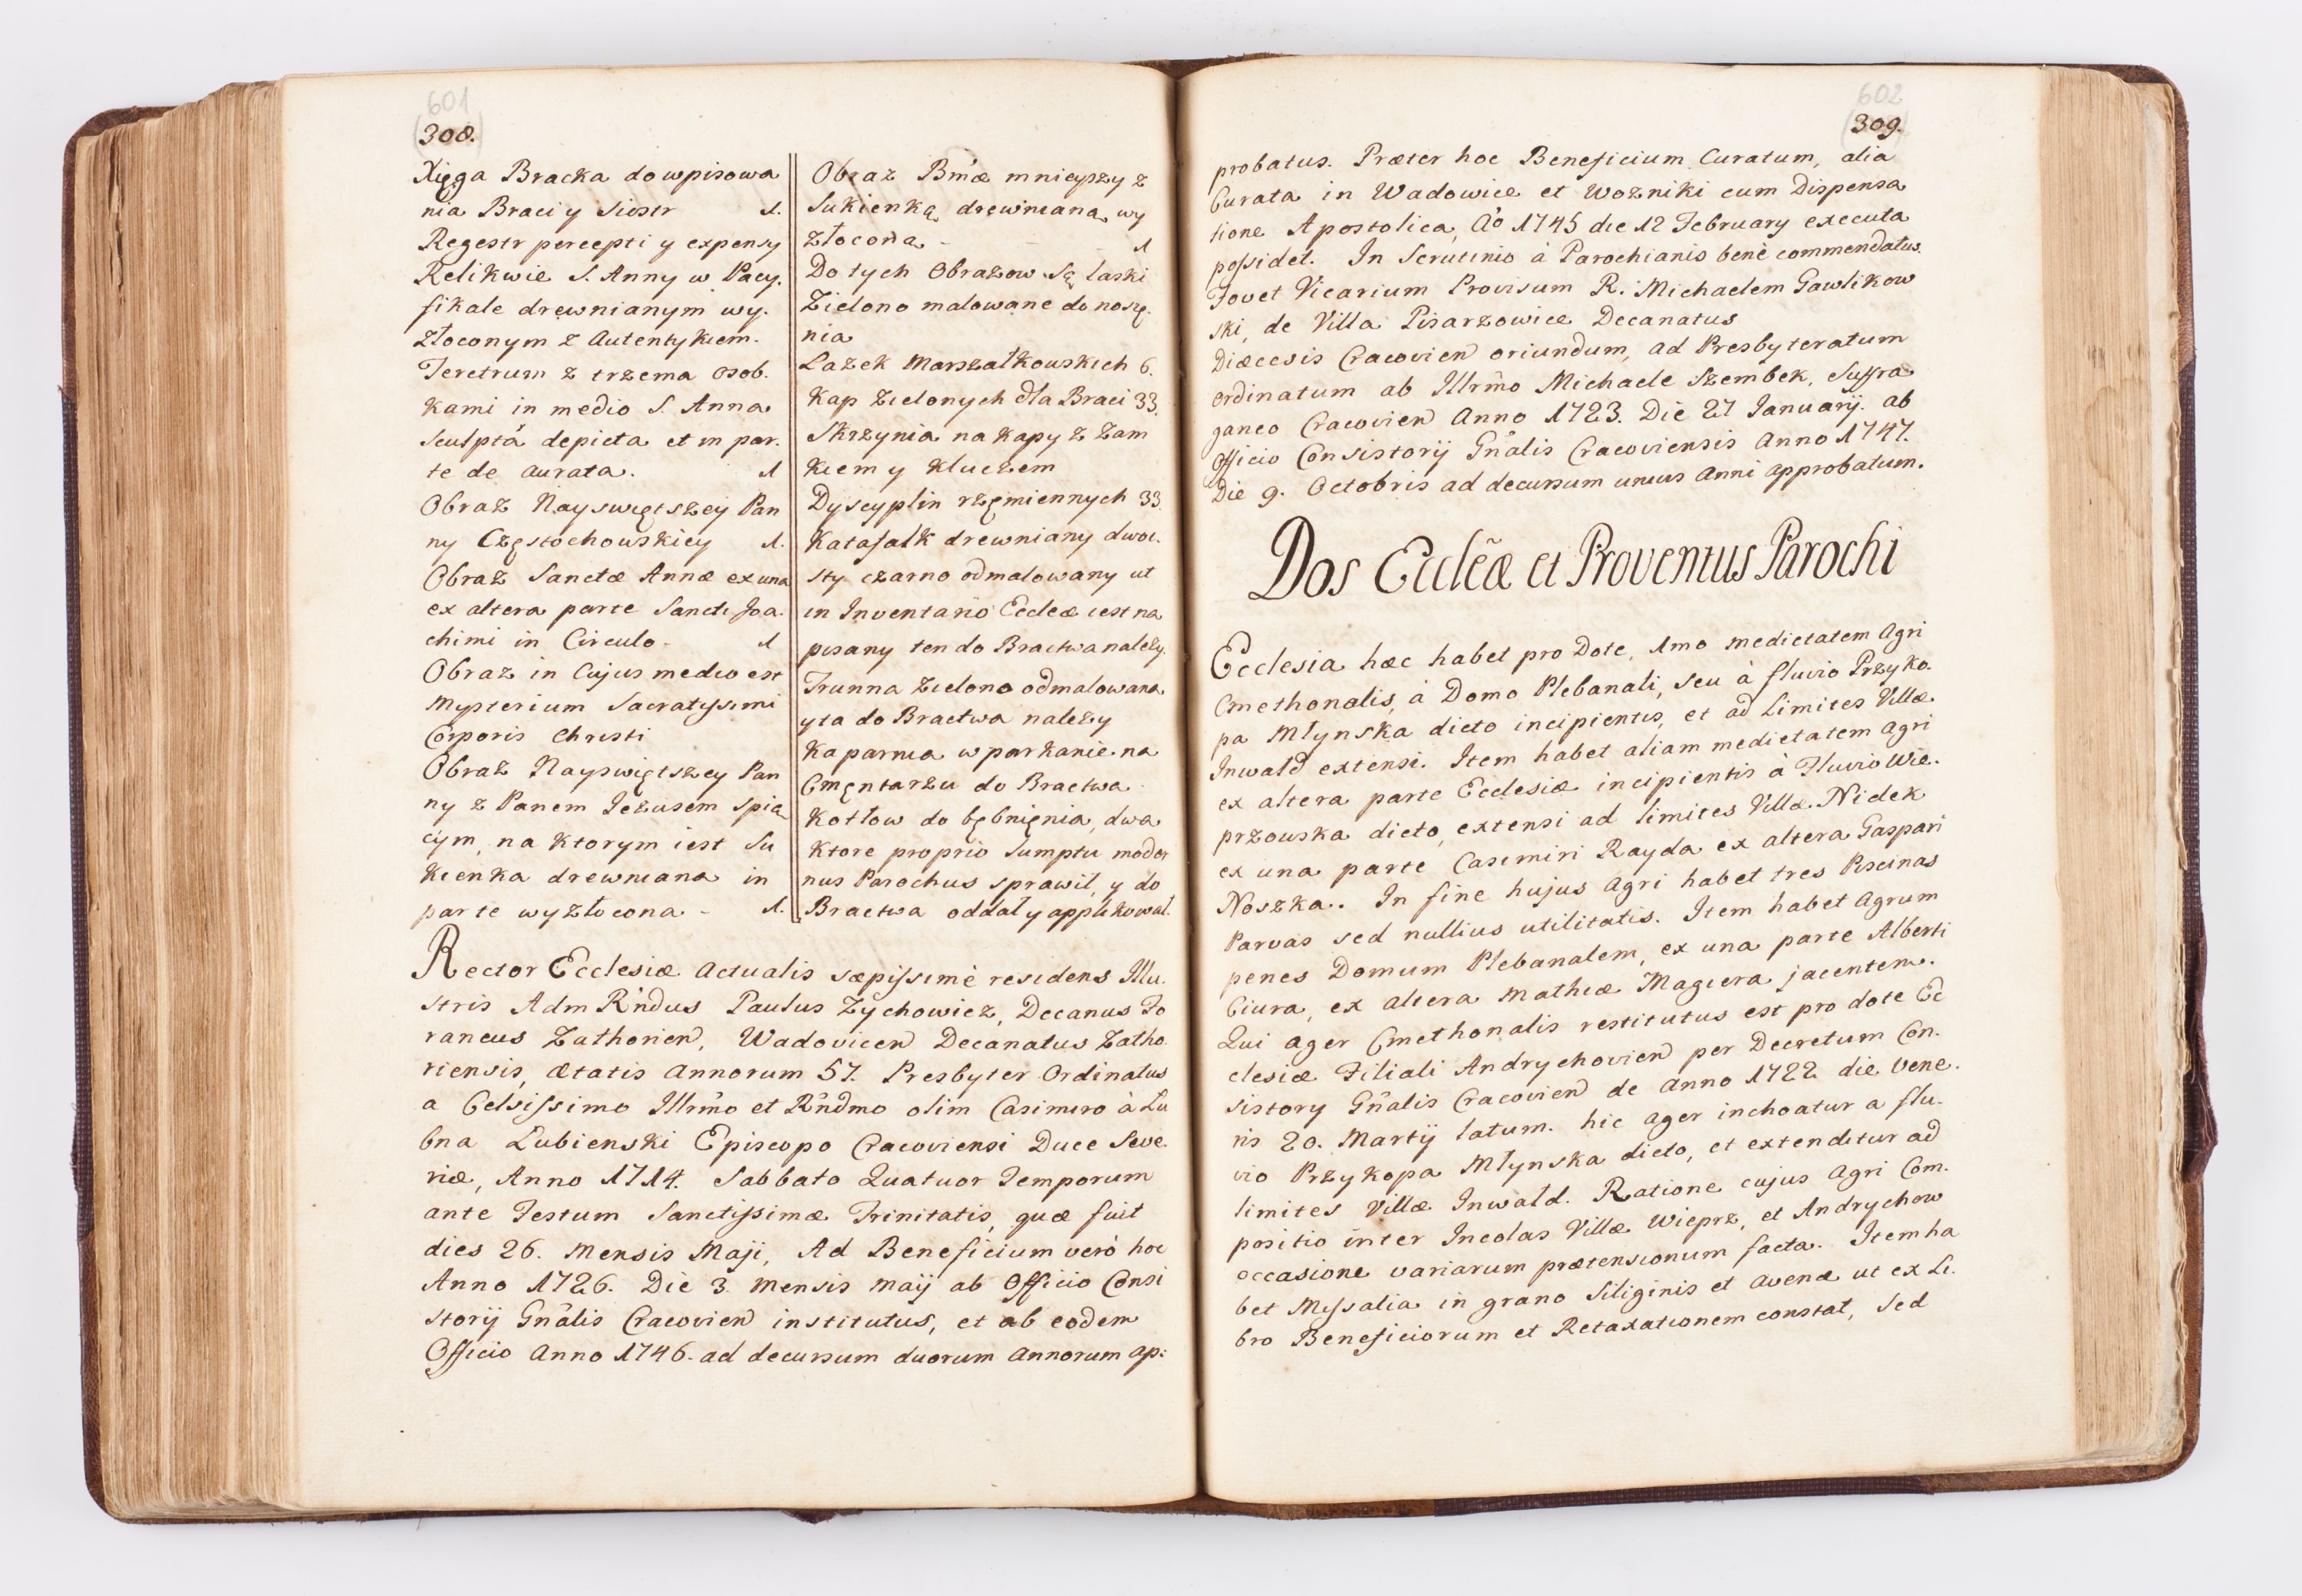 601
308.
Xięga Bracka do wpisowa
nia Braci y Siostr 1.
Regestr percepti y expensy
Relikwie S. Anny w Pacy.
fikale drewnianym wy.
złoconym z Autentykiem.
Feretrum z trzema osob.
kami in medio S. Anna
sculptá depicta et in par.
te de aurata. 1
Obraz Nayswiętszey Pan
ny Częstochowskiey 1.
Obraz Sanctæ Annæ ex una
ex altera parte Sancti Joa.
chimi in Circulo - 1
Obraz in Cujus medio est
Mysterium Sacratissimi
Corporis Christi
Obraz Nayswiętszey Pan
ny z Panem Jezusem spią
cym, na ktorym iest Su
kienka drewniana in
parte wyzłocona - 1.
Obraz Bmæ mnieyszy z
Sukienką drewnianą wy
złocona - 1
Do tych Obrazow Sę laski
Zielono malowane do nosę.
nia
Lazek Marszałkowskich 6.
Kap Zielonych dla Braci 33.
Skrzynia na kapy z Zam
kiem y kluczem
Dyscyplin rzęmiennych 33.
Katafalk drewniany dwoi.
sty czarno odmalowany ut
in Inventario Eccleæ iest na
pisany ten do Bractwa należy.
Trunna Zielono odmalowana
y ta do Bractwa należy
Kaparnia w parkanie na
Cmęntarzu do Bractwa
Kotłow do bębnięnia, dwa
ktore proprio Sumptu moder
nus Parochus sprawił, y do
Bractwa oddał y applikował.
Rector Ecclesiæ Actualis sæpissimè residens Illu.
stris Adm Rndus Paulus Zychowicz, Decanus Fo
raneus Zathorien, Wadovicen Decanatus Zatho
riensis, Ætatis Annorum 57. Presbyter Ordinatus
a Celsissimo Illrmo et Rndmo olim Casimiro à Łu
bna Łubienski Episcopo Cracoviensi Duce Seve.
riæ, Anno 1714. Sabbato Quatuor Temporum
ante Festum Sanctissimæ Trinitatis, quæ fuit
dies 26. Mensis Maji, Ad Beneficium verò hoc
Anno 1726. Die 3. Mensis Maij ab Officio Consi
storij Gnalis Cracovien institutus, et ab eodem
Officio Anno 1746. ad decursum duorum Annorum ap:
602
309.
probatus. Præter hoc Beneficium Curatum, alia
Curata in Wadowice et Wozniki cum Dispensa
tione Apostolica, Ao 1745 die 12 February executa
possidet. In Scrutinio à Parochianis benè commendatus.
Fovet Vicarium Provisum R. Michaelem Gawlikow
ski, de Villa Pisarzowice Decanatus
Diæcesis Cracovien oriundum, ad Presbyteratum
ordinatum ab Illrmo Michaele Szembek, Suffra
ganeo Cracovien Anno 1723. Die 27 Januarij. ab
Officio Consistorij Gnalis Cracoviensis Anno 1747.
Die 9. Octobris ad decursum unius Anni approbatum.
Dos Eccleæ et Proventus Parochi
Ecclesia hæc habet pro Dote, 1mo medietatem Agri
Cmethonalis, à Domo Plebanali, seu à fluvio Przyko.
pa Młynska dicto incipientis, et ad Limites Villæ
Inwałd extensi. Item habet aliam medietatem Agri
ex altera parte Ecclesiæ incipientis à Fluvio Wie.
przouska dicto, extensi ad limites Villæ Nidek
ex una parte Casimiri Rayda ex altera Gaspari
Noszka.. In fine hujus Agri habet tres Piscinas
Parvas sed nullius utilitatis. Item habet Agrum
penes Domum Plebanalem, ex una parte Alberti
Ciura, ex altera Mathiæ Magiera jacentem.
Qui ager Cmethonalis restitutus est pro dote Ec
clesiæ Filiali Andrychovien per Decretum Con.
sistory Gnalis Cracovien de Anno 1722 die Vene.
ris 20. Martij latum. hic Ager inchoatur a flu.
vio Przykopa Młynska dicto, et extenditur ad
limites Villæ Inwałd. Ratione cujus Agri Com.
positio inter Incolas Villæ Wieprz, et Andrychow
occasione variarum prætensionum facta. Item ha
bet Missalia in grano Siliginis et Avenæ ut ex Li.
bro Beneficiorum et Retaxationem constat, Sed